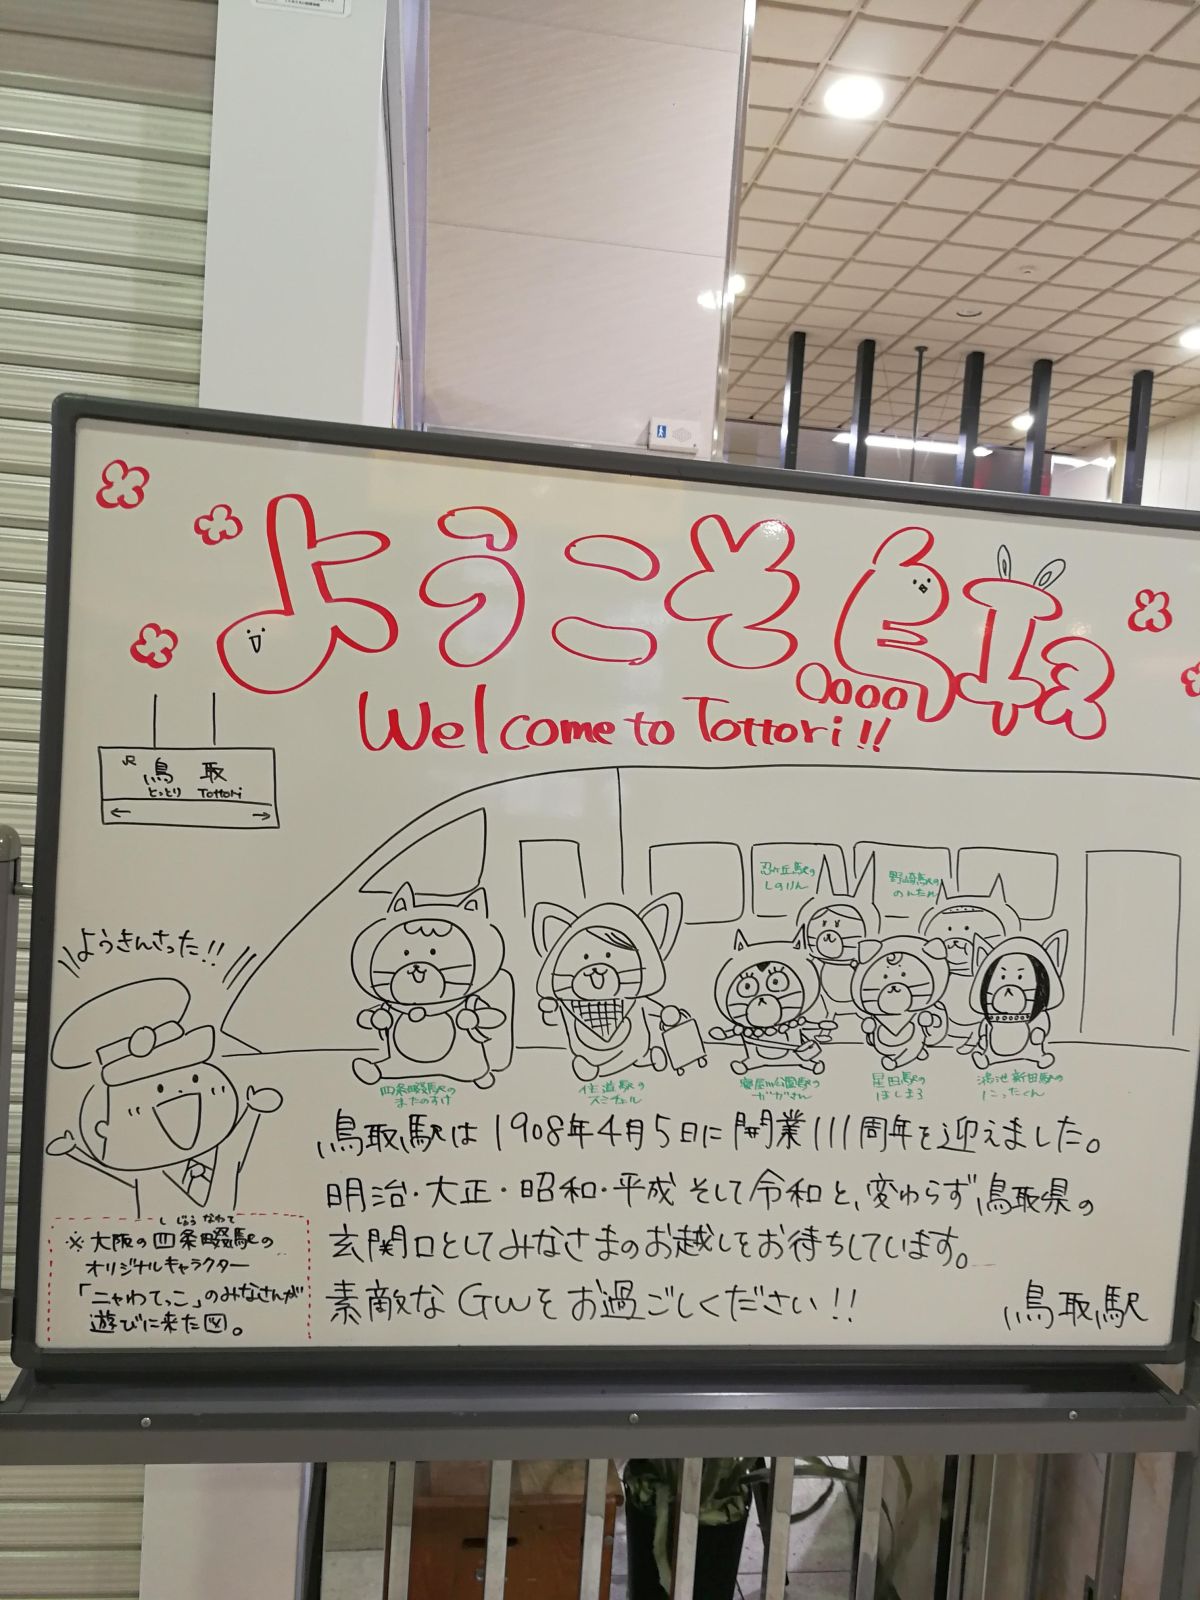 ようこそ鳥取
Welcome to Tottori!!
JR 鳥取
とっとり Tottori
← →
忍ケ丘駅の
しのりん
野崎駅の
のんたれ
ようきんさった!!
四条畷駅の
またのすけ
住道駅の
スミチェル
寝屋川公園駅の
ガガさん
星田駅の
ほしまろ
鴻池新田駅の
にったくん
鳥取駅は1908年4月5日に開業111周年を迎えました。
明治・大正・昭和・平成 そして令和と、変わらず鳥取県の
玄関口としてみなさまのお越しをお待ちしています。
素敵なGWをお過ごしください!!
鳥取駅
しじょうなわて
※大阪の四条畷駅の
オリジナルキャラクター
「ニャわてっこ」のみなさんが
遊びに来た図。